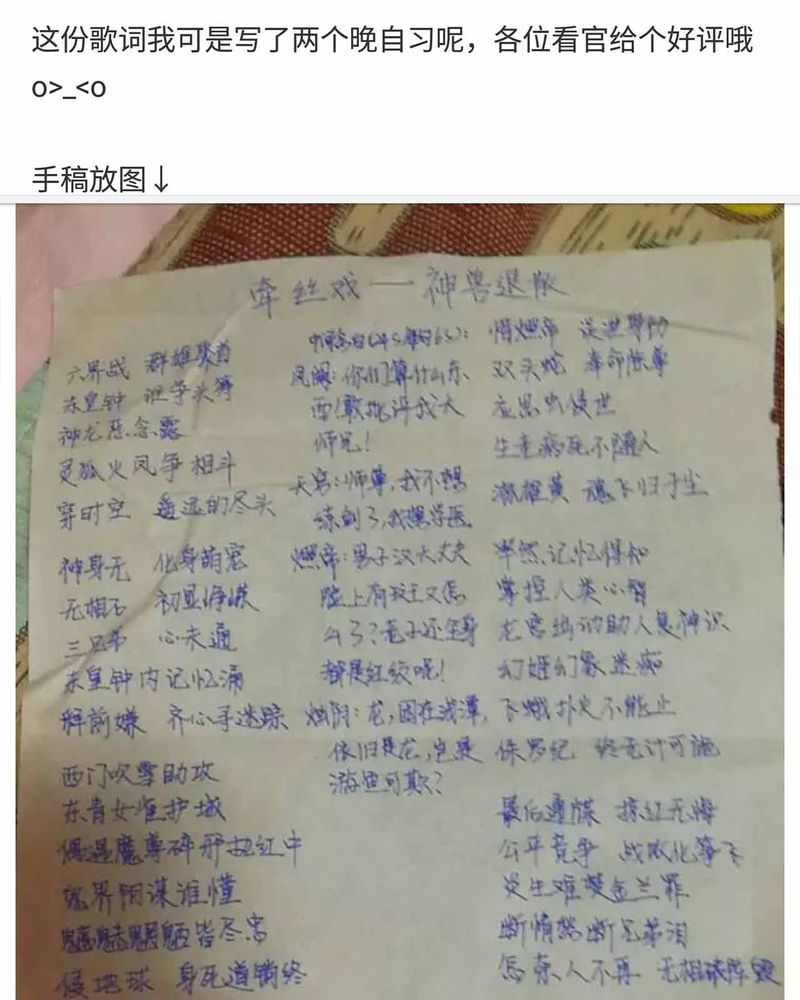 这份歌词我可是写了两个晚自习呢，各位看官给个好评哦
o>_<o
手稿放图↓
牵丝戏——神兽退散
六界战 群雄聚首
东皇钟 谁争头筹
神龙恶念露
灵狐火凤争相斗
穿时空 遥远的尽头
神身无 化身萌宠
无相石 初显峥嵘
三兄弟 心未通
东皇钟内记忆涌
释前嫌 齐心寻迷踪
西门吹雪助攻
东青女追护城
偶遇魔尊碎邢劫红中
鬼界阴谋谁懂
魑魅魍魉皆尽忠
侵地球 身死道销终
你们算什么东
西！敢批评我大
师兄！
天宫：师尊，我不想
练剑了，我想学医
燃帝：男子汉大丈夫
脸上有纹又怎
么了？老子还全身
都是红纹呢！
烛阴：龙，困在浅潭，
依旧是龙，岂是
游鱼可欺？
惜燃帝
双头蛇 奉命
侵世
生老病死不随人
魂飞归于尘
记忆得知
掌控人类心智
龙宫出动助人复神识
幻姬幻象迷痴
飞蛾扑火不能止
侏罗纪 终无计可施
最后遭谋 掠红无悔
公平竞争 战败化等飞
炎生难赎金兰罪
断情怒断兄弟泪
怎奈人不再 无相球阵毁